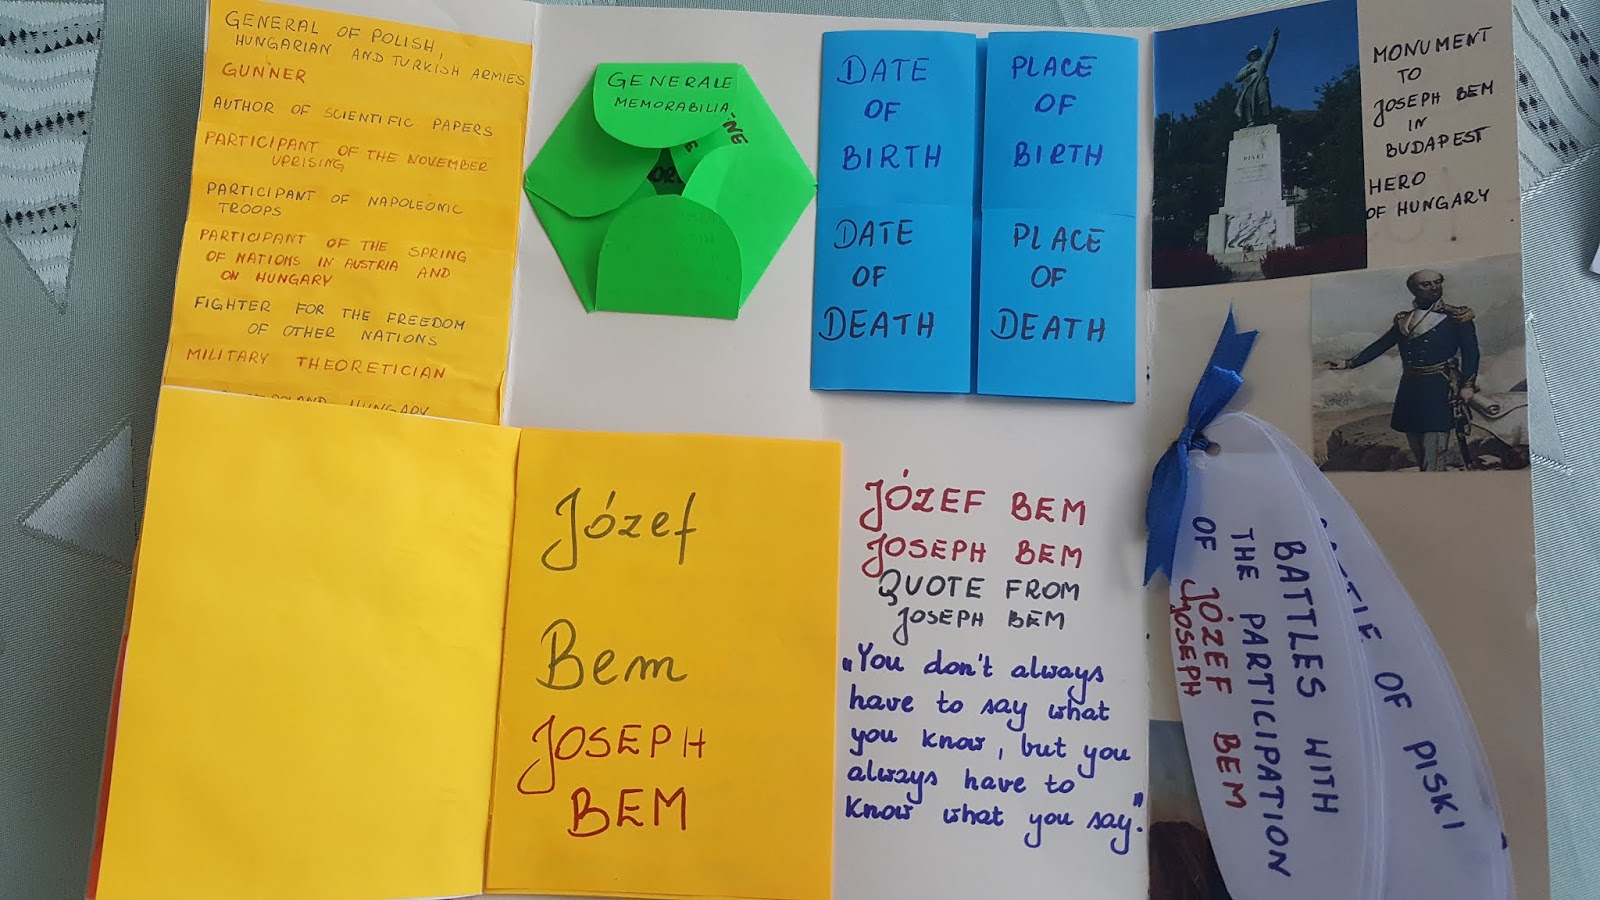 GENERAL OF POLISH,
HUNGARIAN AND TURKISH ARMIES
GUNNER
AUTHOR OF SCIENTIFIC PAPERS
PARTICIPANT OF THE NOVEMBER
UPRISING
PARTICIPANT OF NAPOLEONIC
TROOPS
PARTICIPANT OF THE SPRING
OF NATIONS IN AUSTRIA AND
ON HUNGARY
FIGHTER FOR THE FREEDOM
OF OTHER NATIONS
MILITARY THEORETICIAN
HUNGARY
GENERALE
MEMORABILIA
DATE
OF
BIRTH
PLACE
OF
BIRTH
DATE
OF
DEATH
PLACE
OF
DEATH
PISKI
MONUMENT
TO
JOSEPH BEM
IN
BUDAPEST
HERO
OF HUNGARY
Józef
Bem
JOSEPH
BEM
JÓZEF BEM
JOSEPH BEM
QUOTE FROM
JOSEPH BEM
„You don't always
have to say what
you know, but you
always have to
know what you say."
BATTLES WITH
THE PARTICIPATION
OF JÓZEF BEM
JOSEPH
OF PISKI